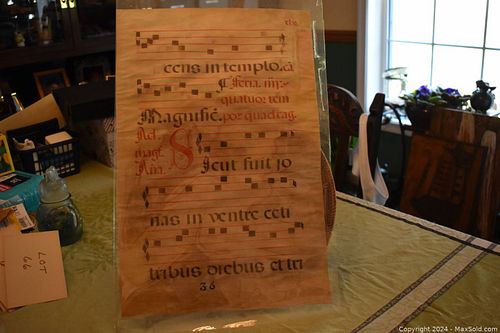 cens in templo.
Feria. iiij.
quatuor tem
Magnifi̅c. por quadrag.
Sicut fuit jo
nas in ventre ceti
tribus diebus et tri
36
LOT
66
Copyright 2024 - MaxSold.com